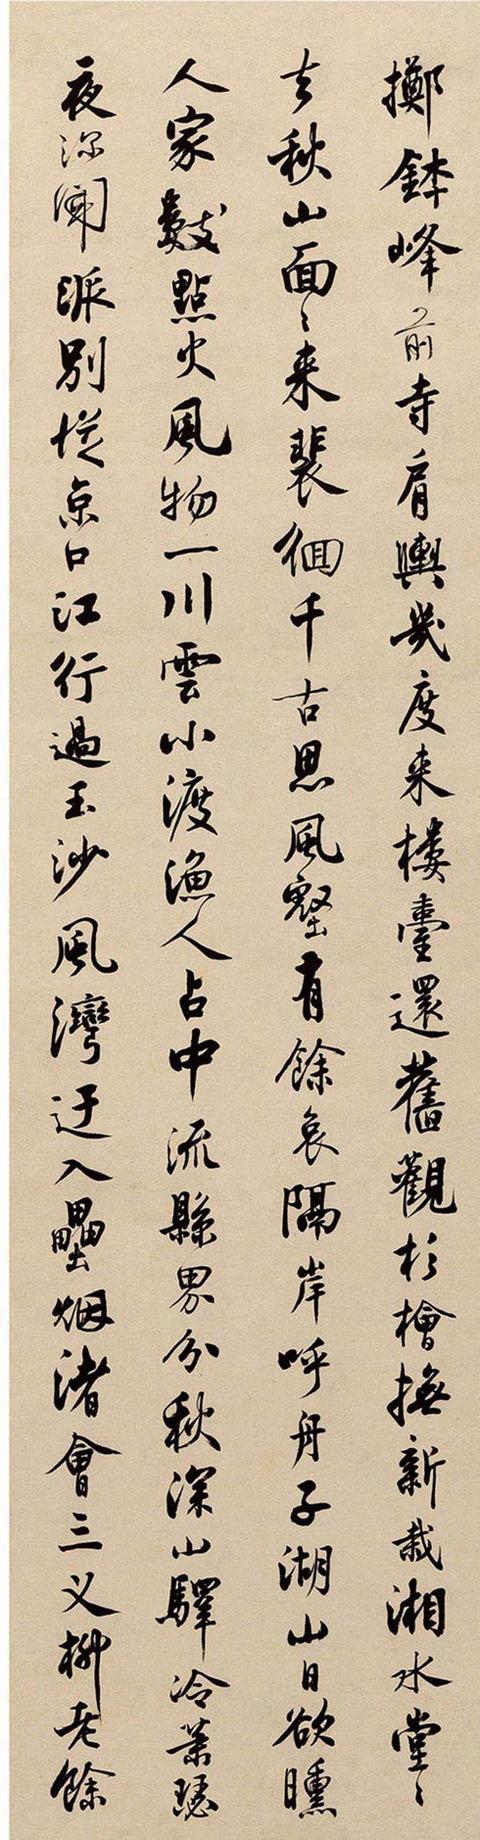 擲鉢峰前寺肩輿幾度来樓臺還舊觀杉檜撫新栽湘水堂〻
去秋山面〻来裴徊千古思風壑有餘哀隔岸呼舟子湖山日欲曛
人家數點火風物一川雲小渡漁人占中流縣界分秋深山驛冷蕭瑟
夜深聞派別從京口江行過玉沙風灣迂入壘烟渚會三义柳老餘